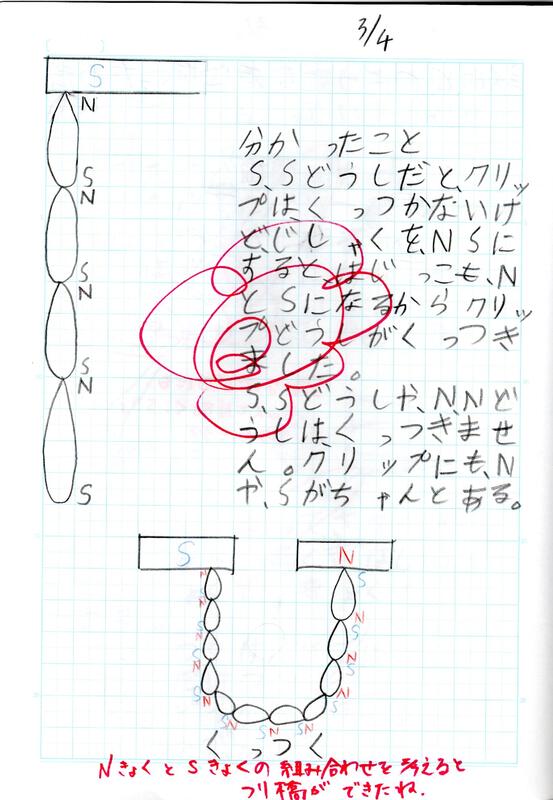 3/4
S
N
S
N
S
N
S
N
S
分かったこと
S、Sどうしだと、クリッ
プは、くっつかないけ
ど、じしゃくを、NSに
すると、はじっこも、N
とSになるからクリッ
プどうしがくっつき
ました。
S、Sどうしや、N、Nど
うしは、くっつきませ
ん。クリップにも、N
や、Sがちゃんとある。
S
N
N
S
S
N
S
N
N
S
S
N
S
N
S
N
S
N
S
N
くっつく
NきょくとSきょくの組み合わせを考えると
つり橋ができたね.